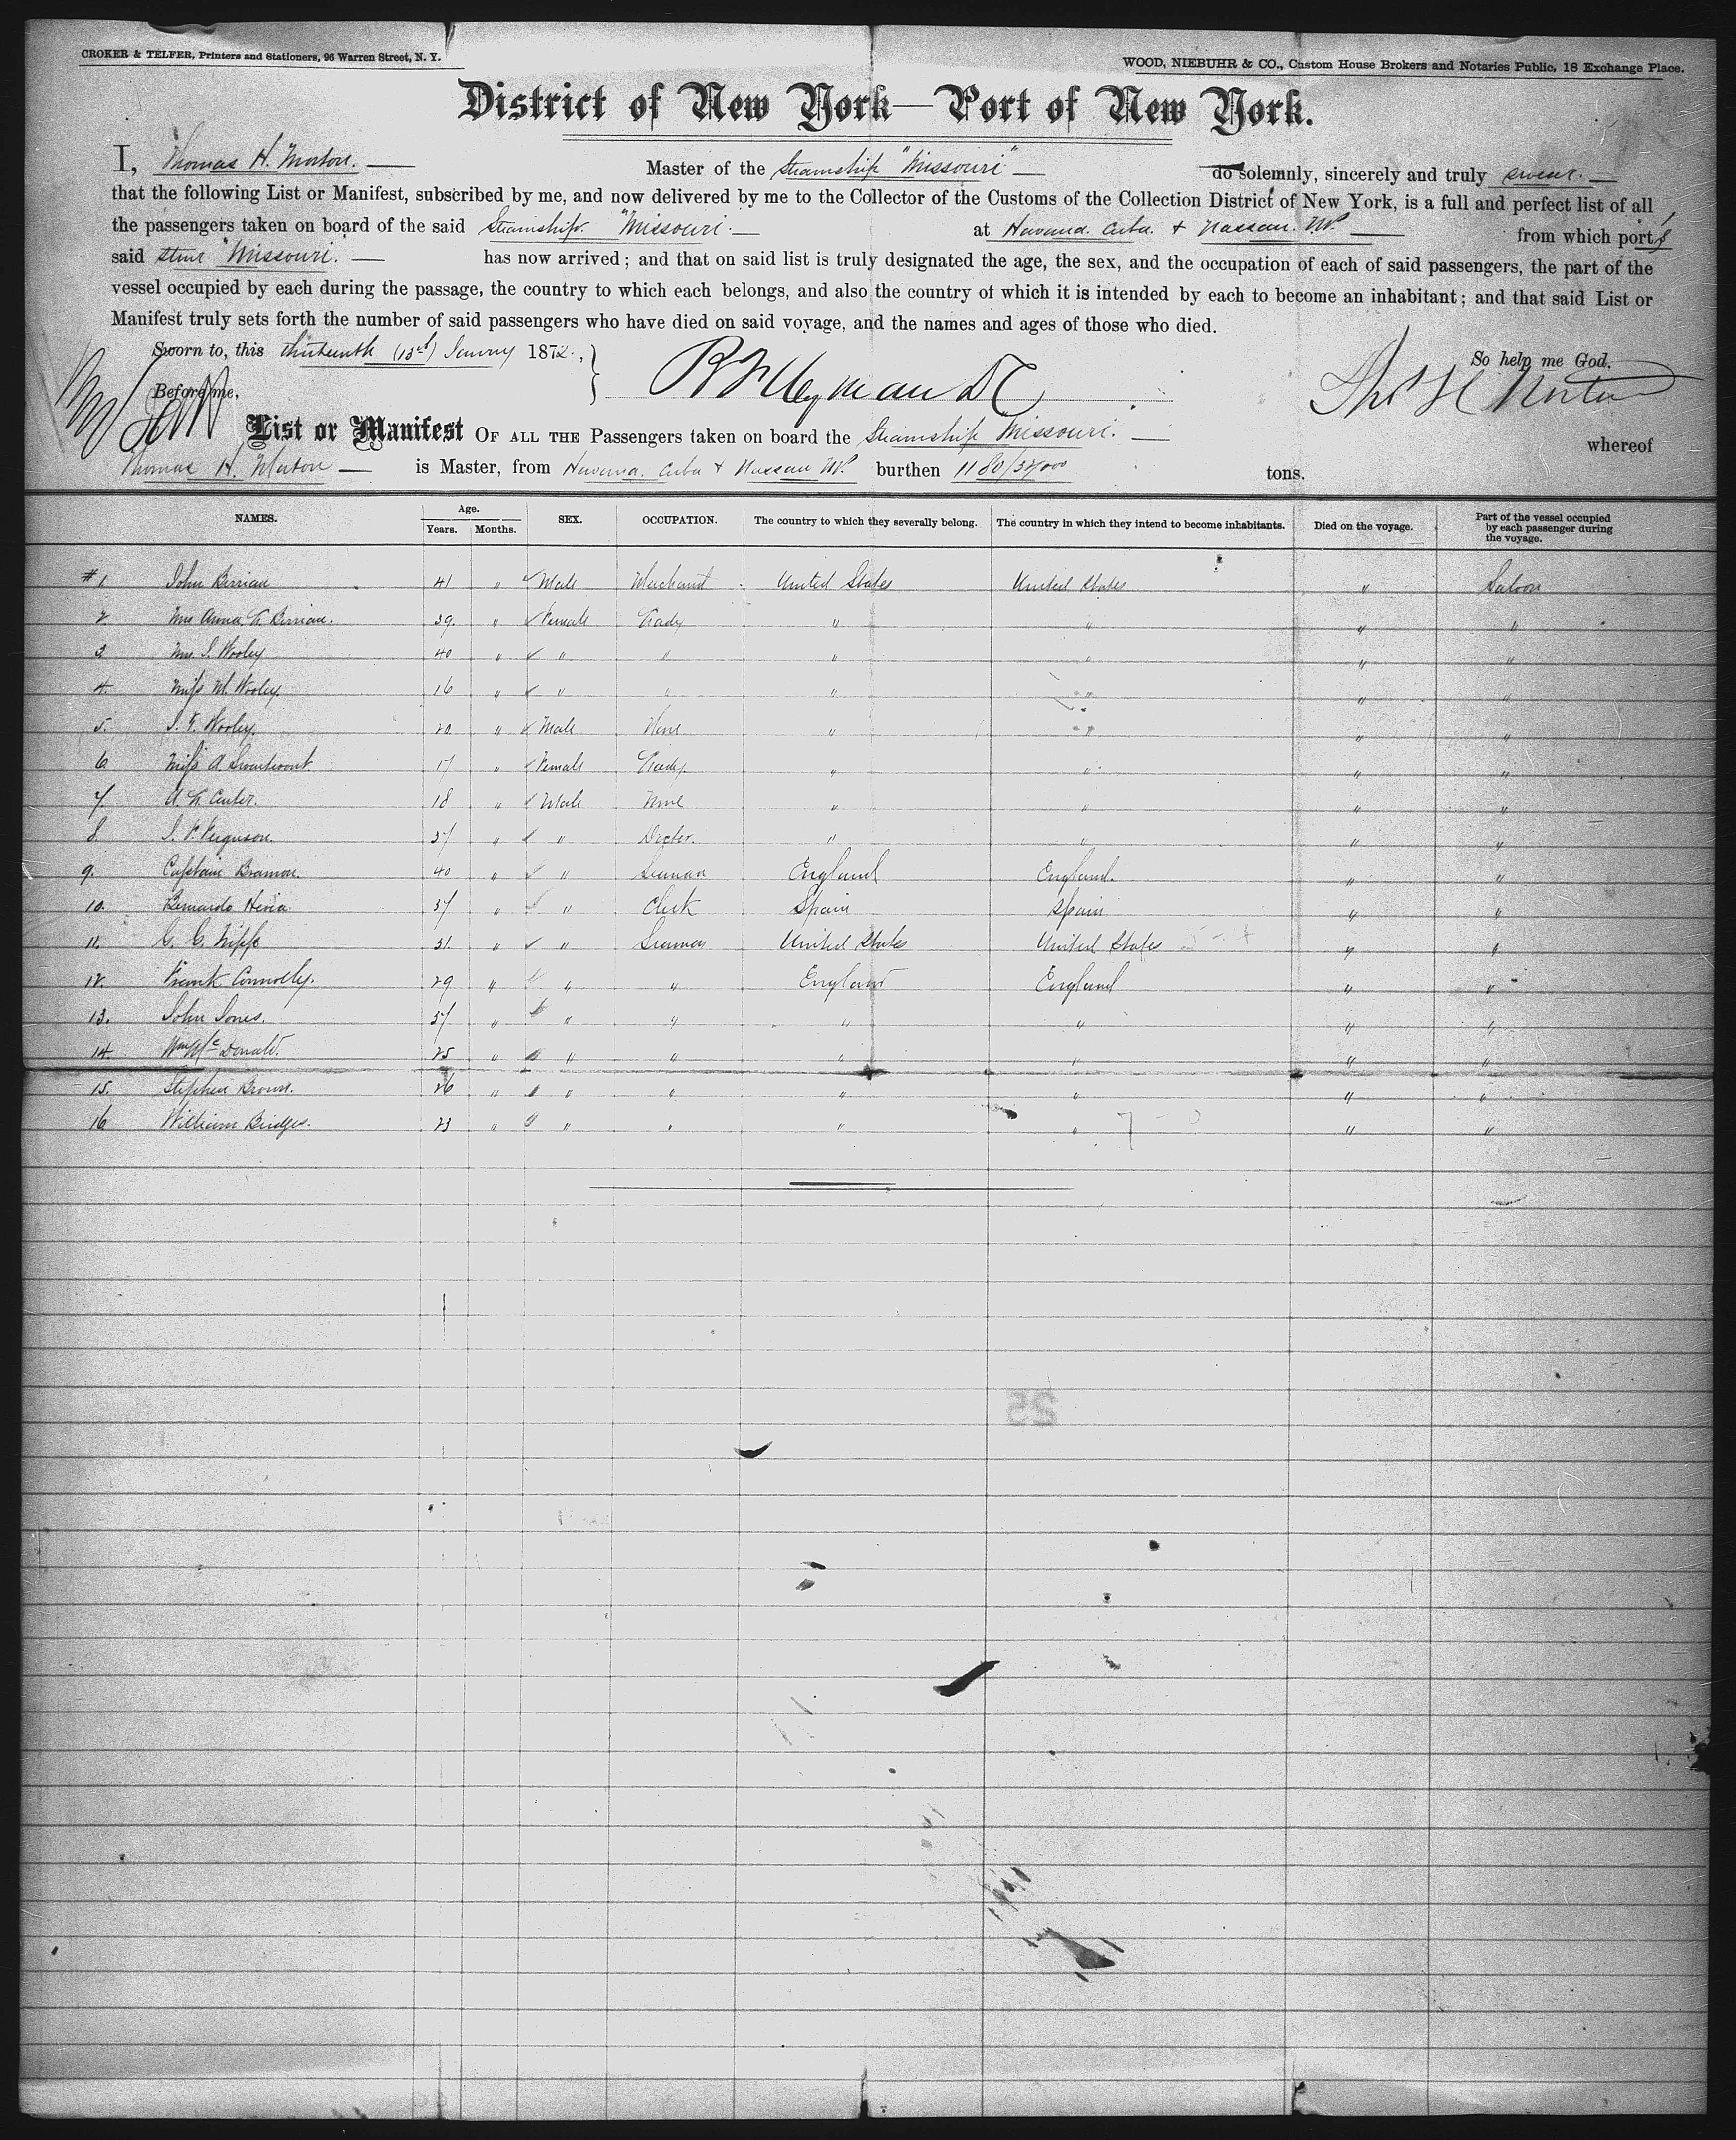 CROKER & TELFER, Printers and Stationers, 96 Warren Street, N. Y.
WOOD, NIEBUHR & CO., Custom House Brokers and Notaries Public, 18 Exchange Place.
District of New York—Port of New York.
I, Thomas H. Morton. — Master of the Steamship "Missouri" — do solemnly, sincerely and truly swear. —
that the following List or Manifest, subscribed by me, and now delivered by me to the Collector of the Customs of the Collection District of New York, is a full and perfect list of all
the passengers taken on board of the said Steamship. "Missouri. — at Havana. Cuba. + Nassau. NP. — from which ports
said Stmr "Missouri. — has now arrived; and that on said list is truly designated the age, the sex, and the occupation of each of said passengers, the part of the
vessel occupied by each during the passage, the country to which each belongs, and also the country of which it is intended by each to become an inhabitant; and that said List or
Manifest truly sets forth the number of said passengers who have died on said voyage, and the names and ages of those who died.
Sworn to, this thirteenth (13th) January 1872.,
So help me God.
Before me,
Thos H Morton
List or Manifest OF ALL THE Passengers taken on board the Steamship Missouri. — whereof
Thomas H. Morton — is Master, from Havana. Cuba + Nassau NP. burthen 1180/37000 tons.
NAMES. Age. Years. Months. SEX. OCCUPATION. The country to which they severally belong. The country in which they intend to become inhabitants. Died on the voyage. Part of the vessel occupied by each passenger during the voyage.
#1. John Berrian 41 " Male Merchant United States United States " Saloon
2. Mrs Anna L. Berrian. 39. " Female Lady " " " "
3 Mrs. S. Wooley 40 " " " " " " "
4. Miss M. Wooley. 16 " " " " " " "
5. S. F. Wooley. 20 " Male None " " " "
6 Miss A. Swartwout. 17 " Female Lady. " " " "
7. A. L. Center. 18 " Male None " " " "
8. J. P. Ferguson. 37 " " Doctor. " " " "
9. Captain Bramon. 40 " " Seaman England England. " "
10. Bernardo Hevia 37 " " Clerk Spain Spain " "
11. C. C. 31. " " Seaman United States United States " "
12. Frank Connolly. 29 " " " England England " "
13. John Jones. 37 " " " " " " "
14. Wm Mc Donald. 25 " " " " " " "
15. Stephen Brown. 26 " " " " " " "
16 William Bridges. 23 " " " " " " "
25